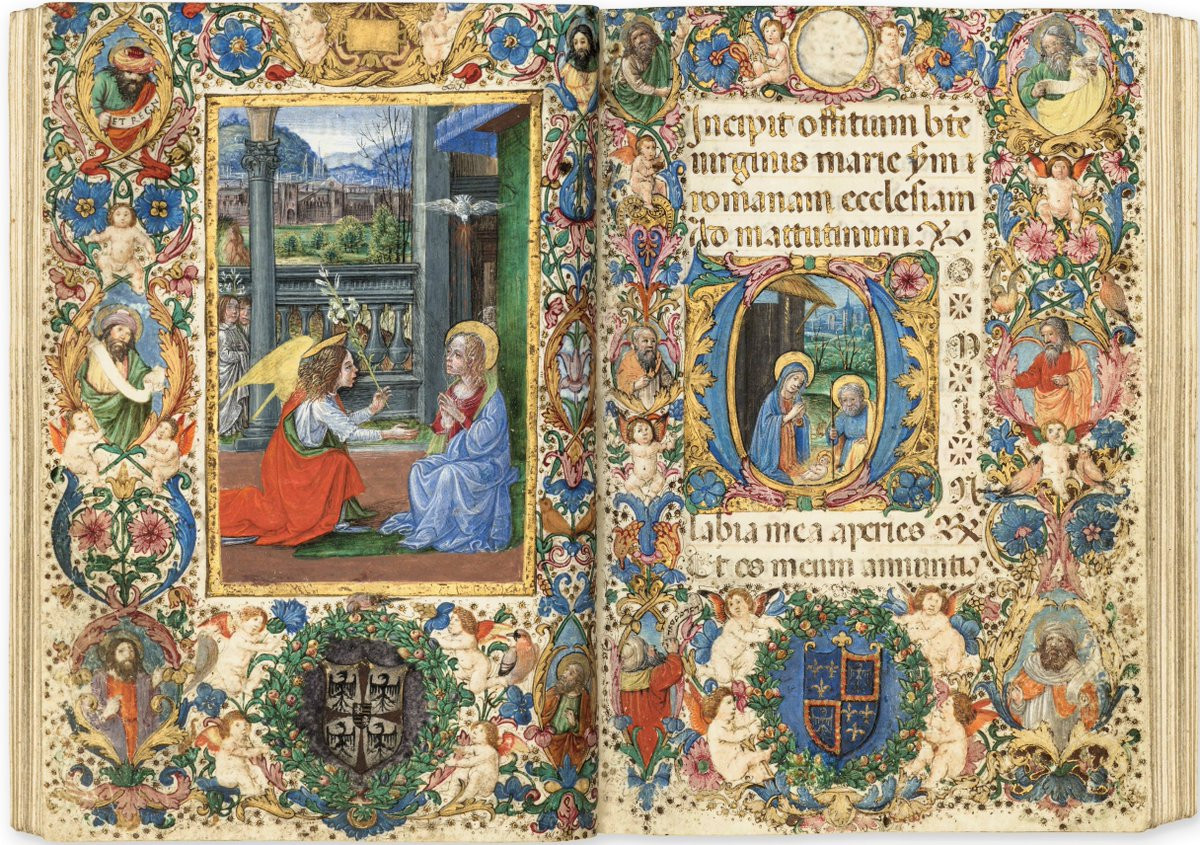 ET REG
Incipit offitium bt̄e
uirginis marie ẜm
romanam ecclesiam
Ad mattutinum ℣
D
O
M
I
N
labia mea aperies ℟
Et os meum annunti